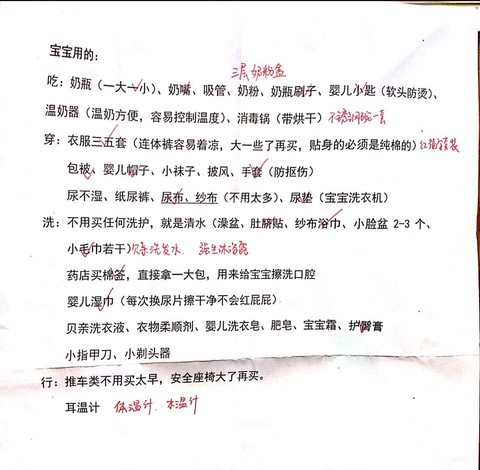 宝宝用的：
三层奶粉盒
吃：奶瓶（一大一小）、奶嘴、吸管、奶粉、奶瓶刷子、婴儿小匙（软头防烫）、
温奶器（温奶方便，容易控制温度）、消毒锅（带烘干）不锈钢碗一套
穿：衣服三五套（连体裤容易着凉，大一些了再买，贴身的必须是纯棉的）
包被、婴儿帽子、小袜子、披风、手套（防抠伤）
尿不湿、纸尿裤、尿布、纱布（不用太多）、尿垫（宝宝洗衣机）
洗：不用买任何洗护，就是清水（澡盆、肚脐贴、纱布浴巾、小脸盆 2-3 个、
小毛巾若干）贝亲洗发水、强生沐浴露
药店买棉签，直接拿一大包，用来给宝宝擦洗口腔
婴儿湿巾（每次换尿片擦干净不会红屁屁）
贝亲洗衣液、衣物柔顺剂、婴儿洗衣皂、肥皂、宝宝霜、护臀膏
小指甲刀、小剃头器
行：推车类不用买太早，安全座椅大了再买。
耳温计 体温计、水温计